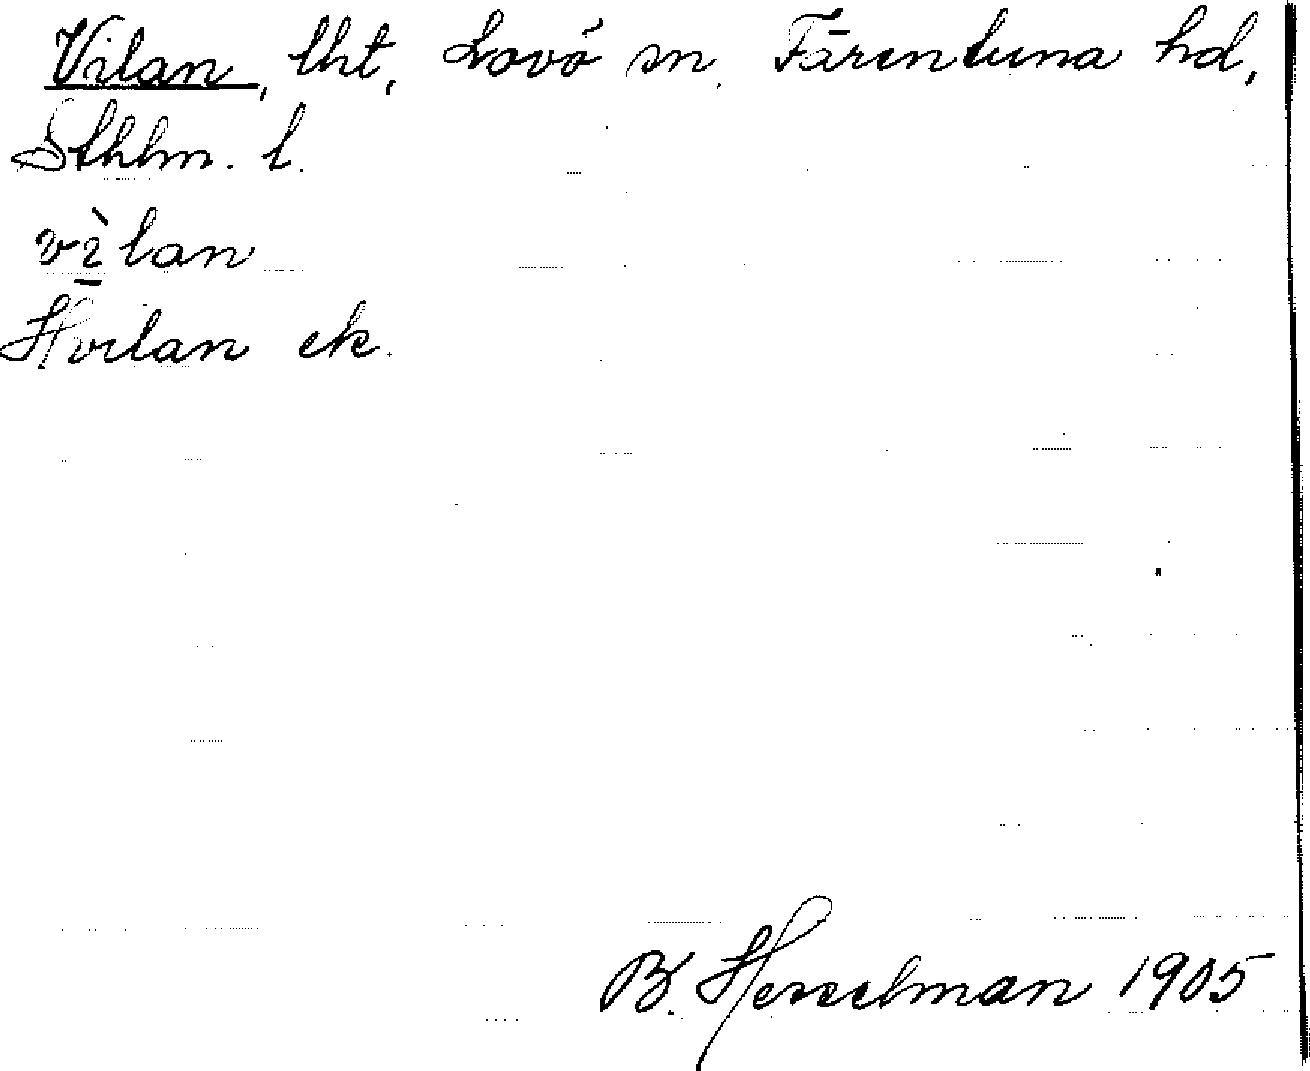 Vilan, lht, Lovö sn. Färentuna hd,
Sthlm. l.
vì̱lan
Hvilan ek.
B. Hesselman 1905